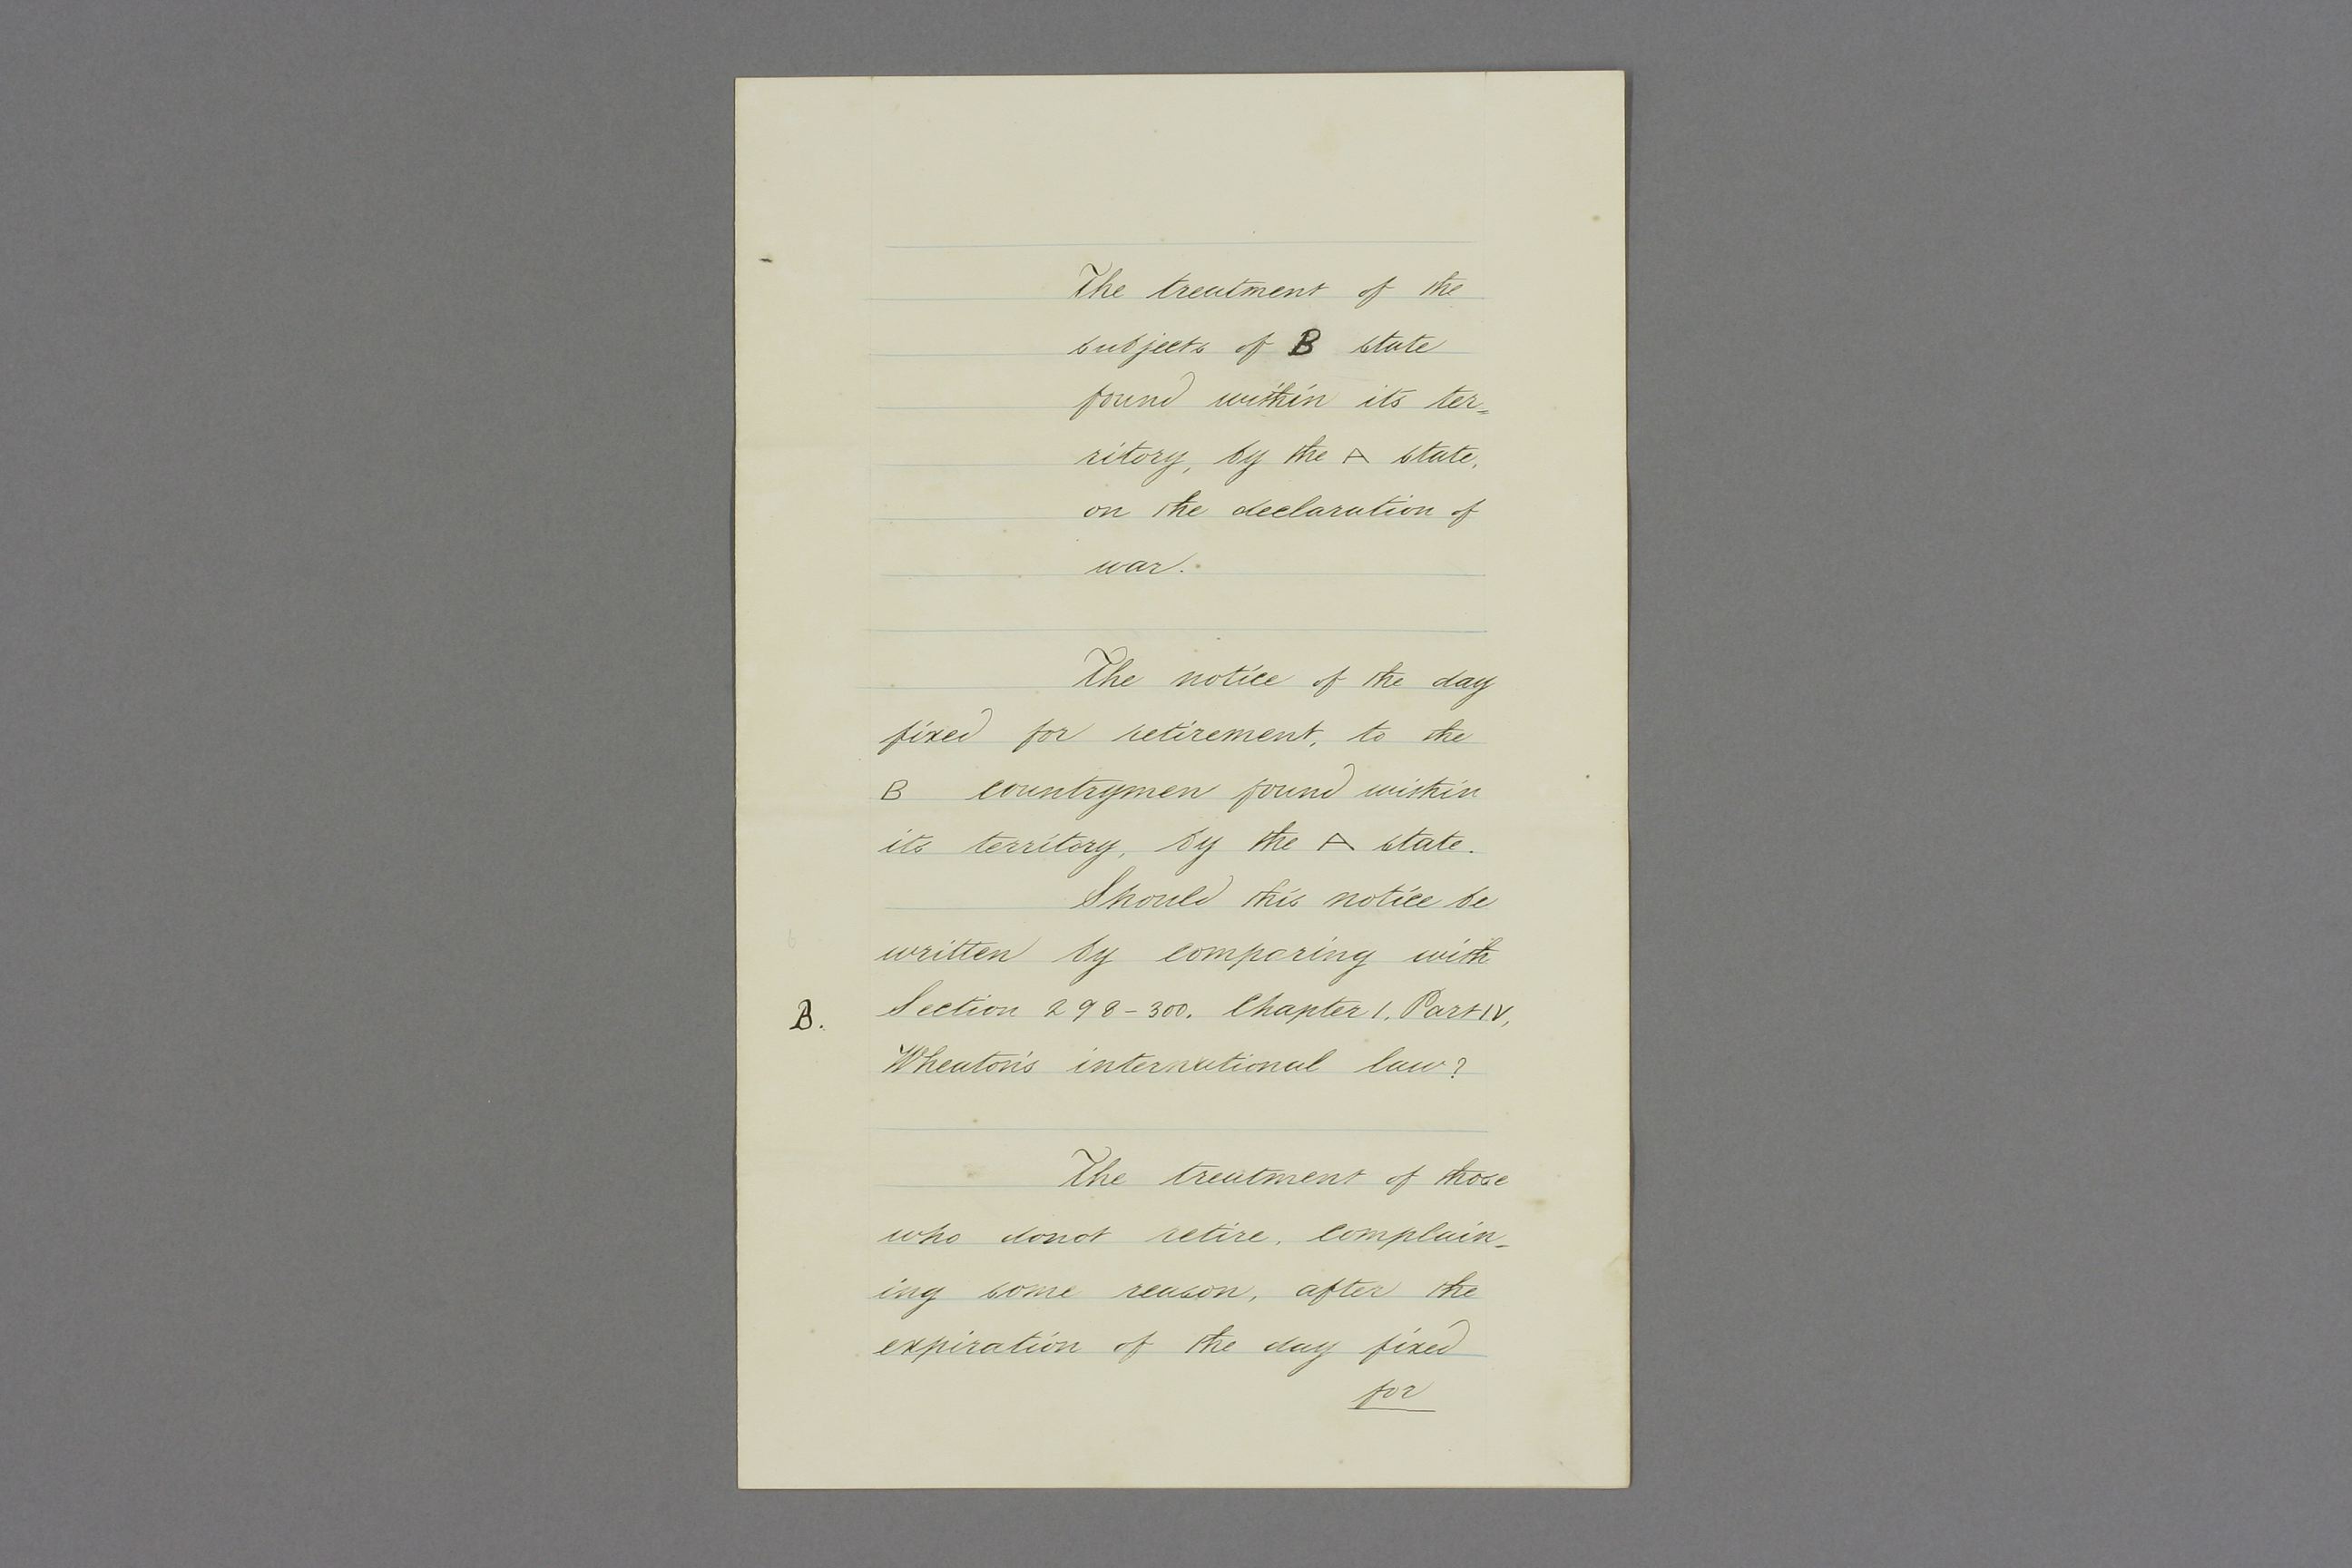 The treatment of the
subjects of B state
found within its ter=
ritory, by the A state,
on the declaration of
war.
The notice of the day
fixed for retirement, to the
B countrymen found within
its territory, by the A state.
Should this notice be
written by comparing with
B. Section 298-300. Chapter 1. Part IV,
Wheaton's international law?
The treatment of those
who donot retire, complain=
ing some reason, after the
expiration of the day fixed
for